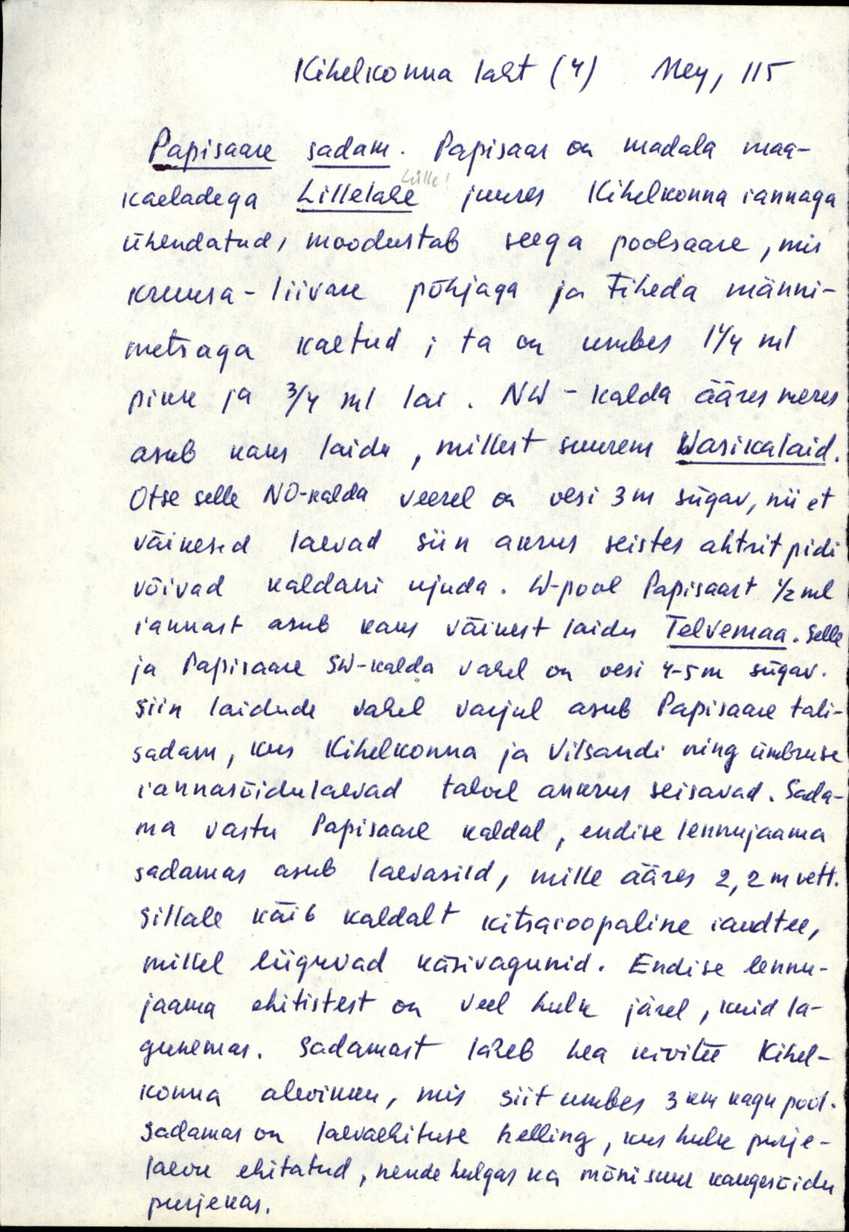 Kihelkonna laht (4) Mey, 115
Papisaare sadam. Papisaar on madala maa-
kaeladega Lillelahe juures Kihelkonna rannaga
Lülle!
ühendatud, moodustab seega poolsaare, mis
kruusa-liivase põhjaga ja tiheda männi-
metsaga kaetud; ta on umbes 1 1/4 ml
pikk ja 3/4 ml lai. NW-kalda ääres meres
asub kaks laidu, millest suurem Wasikalaid.
Otse selle NO-kalda veerel on vesi 3 m sügav, nii et
väikesed laevad siin ankrus seistes ahtrit pidi
võivad kaldani ujuda. W-pool Papisaart 1/2 ml
rannast asub kaks väikest laidu Telvemaa. Selle
ja Papisaare SW-kalda vahel on vesi 4-5 m sügav.
Siin laidude vahel varjul asub Papisaare tali-
sadam, kus Kihelkonna ja Vilsandi ning ümbruse
rannasõidulaevad talvel ankrus seisavad. Sada-
ma vastu Papisaare kaldal, endise lennujaama
sadamas asub laevasild, mille ääres 2,2 m vett.
Sillale käib kaldalt kitsaroopaline raudtee,
millel liiguvad käsivagunid. Endise lennu-
jaama ehitistest on veel hulk järel, kuid la-
gunemas. Sadamast läheb hea kivitee Kihel-
konna alevikku, mis siit umbes 3 km kagu pool.
Sadamas on laevaehituse helling, kus hulk purje-
laevu ehitatud, nende hulgas ka mõni suur kaugesõidu
purjekas.